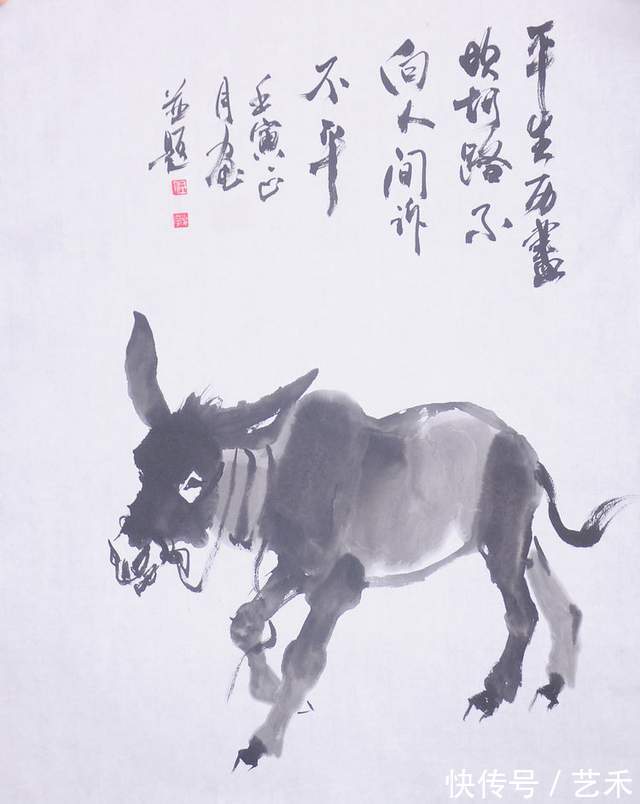 平生历盡
坎坷路不
向人间诉
不平
壬寅正
月画
並题
快传号 / 艺禾